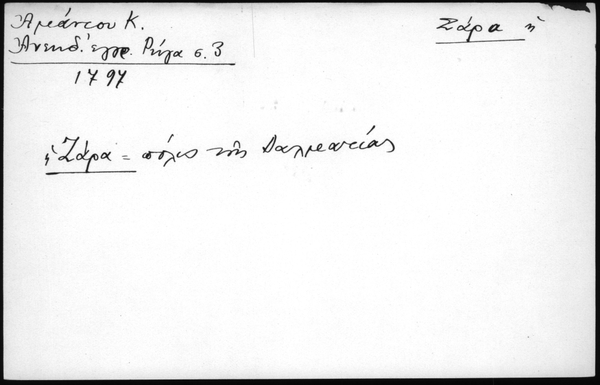 Ἀμάντου Κ.
Ἀνεκδ. ἔγγρ. Ρήγα σ. 3
1797
Ζάρα ἡ
ἡ Ζάρα = πόλις τῆς Δαλματίας